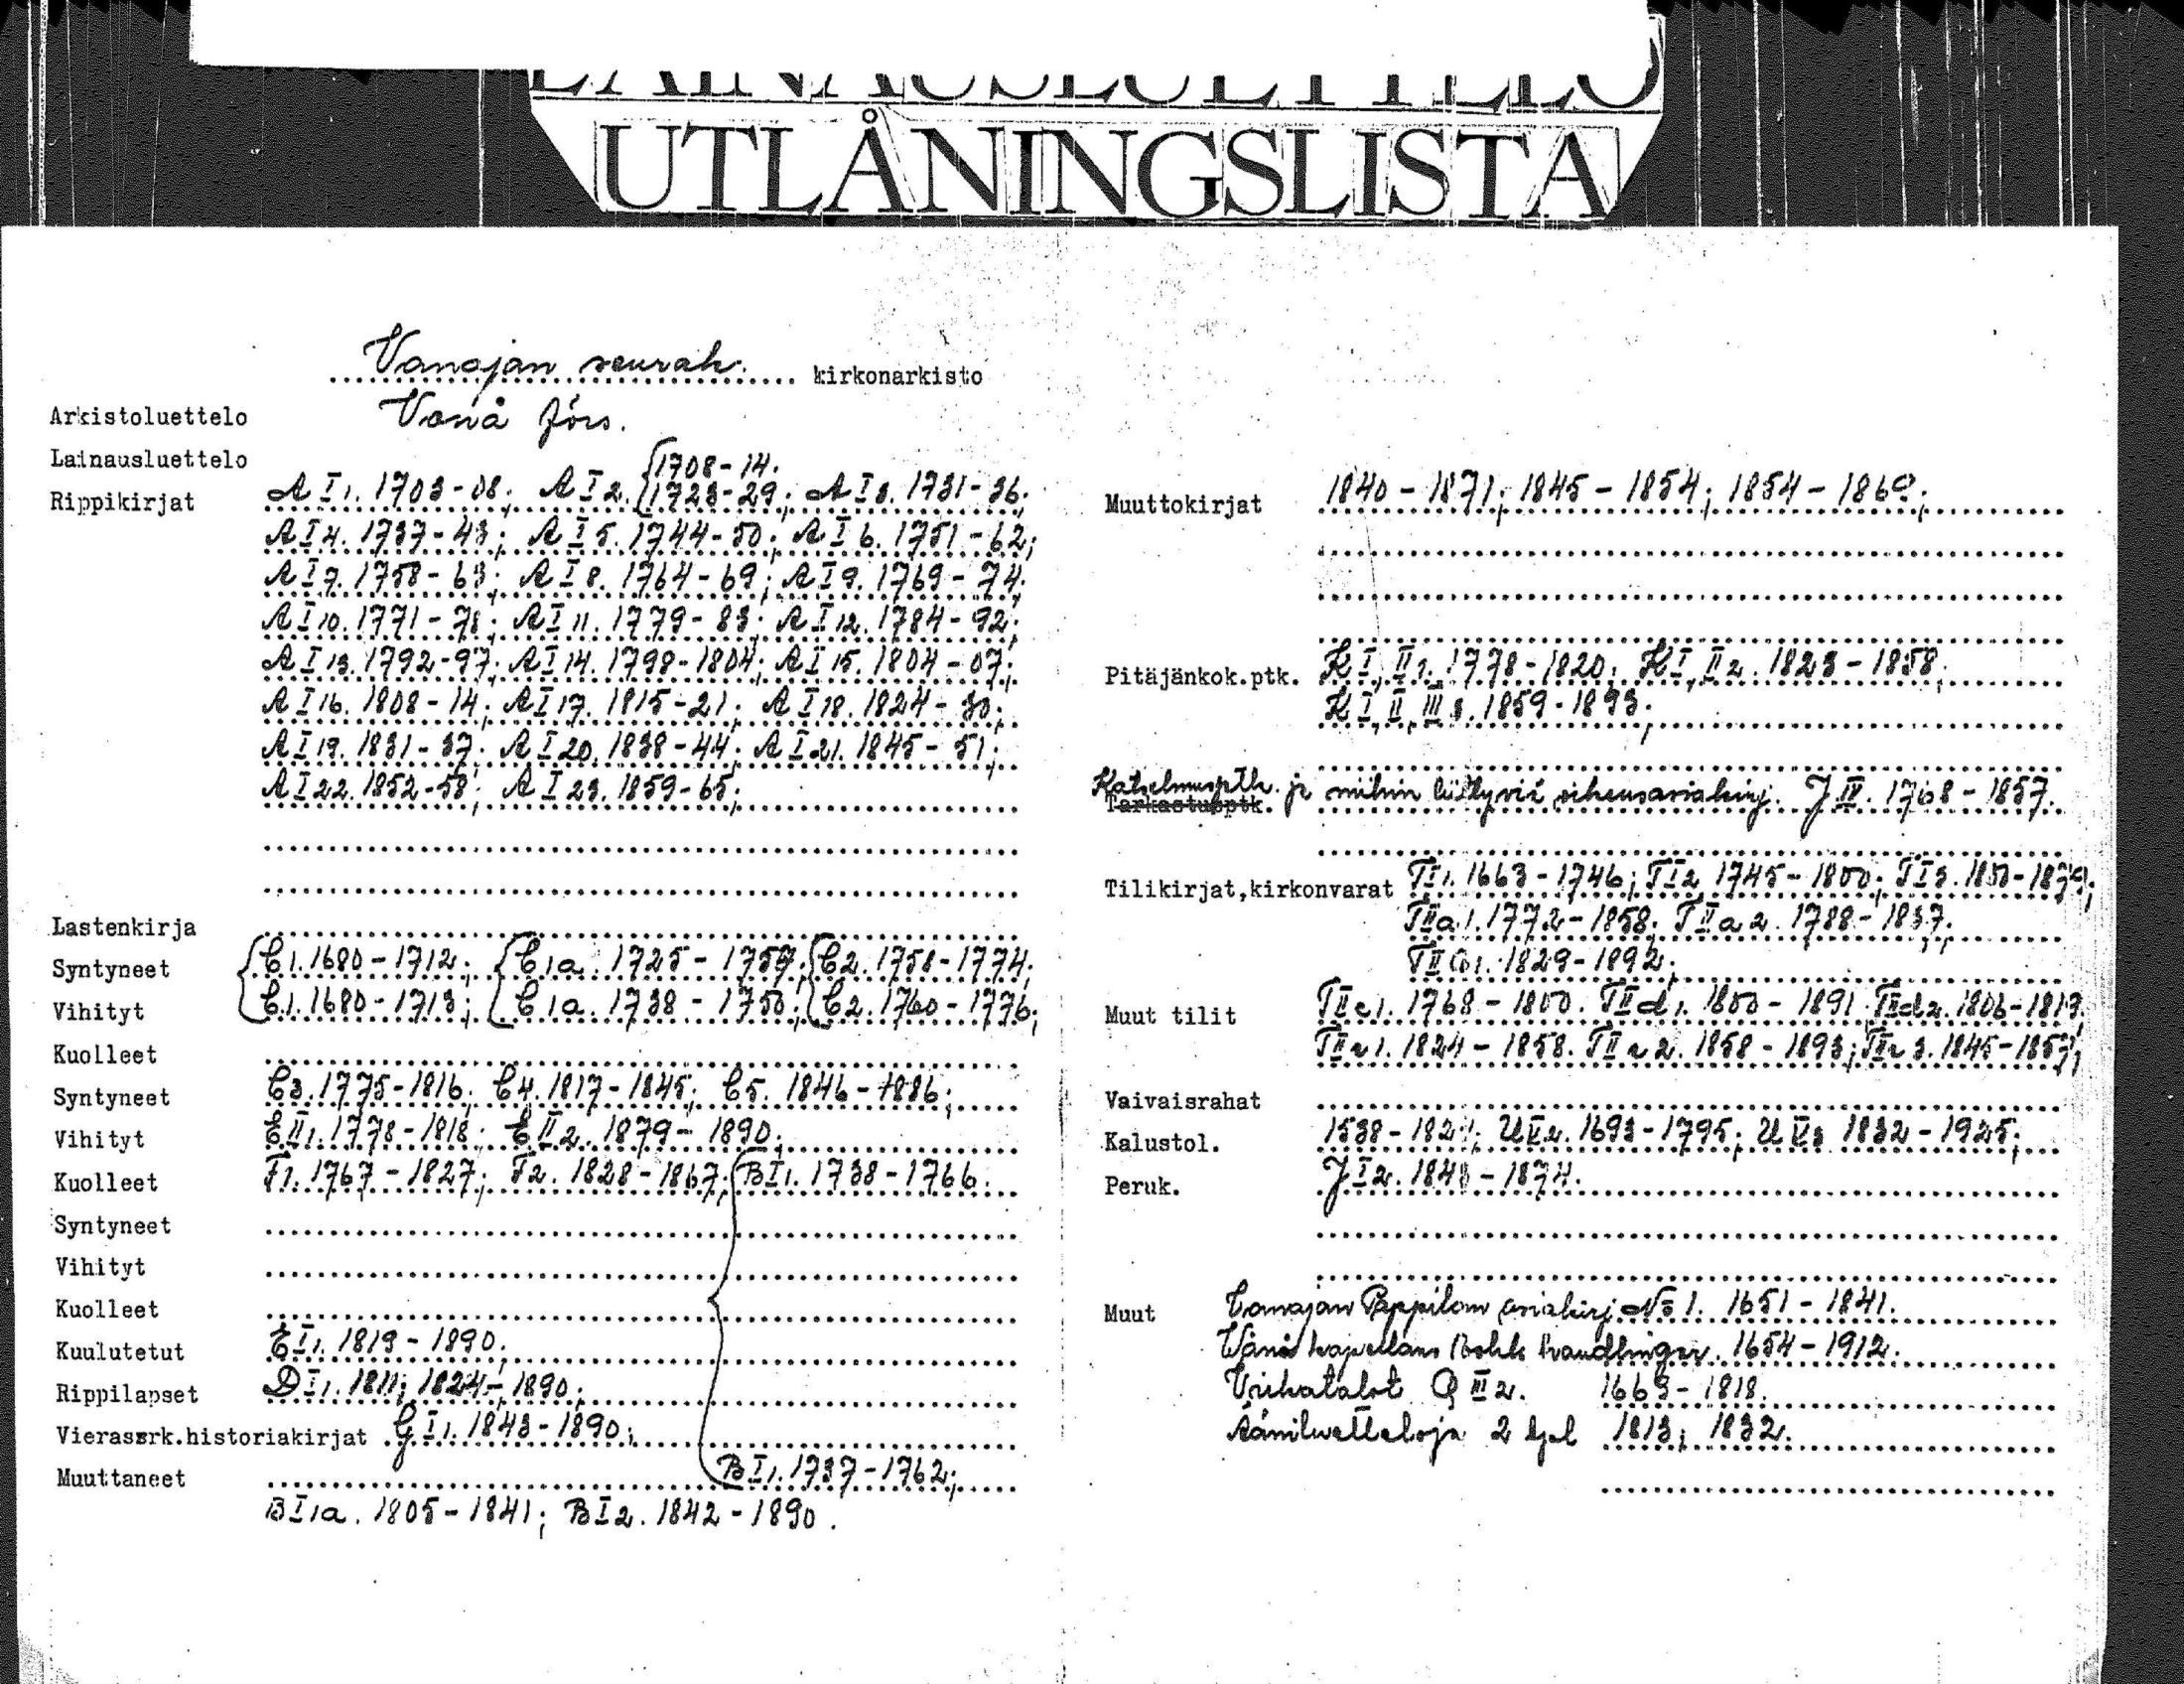 LAINAUSLUETTELO
UTLÅNINGSLISTA
Vanajan seurak. kirkonarkisto
Arkistoluettelo Vånå förs.
Lainausluettelo
Rippikirjat A I 1. 1703-08; A I 2. {1708-14. 1723-29; A I 3. 1731-36;
A I 4. 1737-43; A I 5. 1744-50; A I 6. 1751-62;
A I 7. 1758-63; A I 8. 1764-69; A I 9. 1769-74;
A I 10. 1771-78; A I 11. 1779-83; A I 12. 1784-92;
A I 13. 1792-97; A I 14. 1798-1804; A I 15. 1804-07;
A I 16. 1808-14; A I 17. 1815-21; A I 18. 1824-30;
A I 19. 1831-37; A I 20. 1838-44; A I 21. 1845-51;
A I 22. 1852-58; A I 23. 1859-65;
Lastenkirja
Syntyneet {C 1. 1680-1712; {C 1a. 1725-1757; {C 2. 1758-1774;
Vihityt C 1. 1680-1713; C 1a. 1738-1750; C 2. 1760-1776;
Kuolleet
Syntyneet C 3. 1775-1816; C 4. 1817-1845; C 5. 1846-1886;
Vihityt E II 1. 1778-1818; E II 2. 1879-1890;
Kuolleet F 1. 1767-1827; F 2. 1828-1867; {B I 1. 1738-1766.
Syntyneet
Vihityt
Kuolleet
Kuulutetut E I 1. 1819-1890;
Rippilapset D I 1. 1811; 1824-1890;
Vierassrk.historiakirjat G I 1. 1843-1890;
Muuttaneet B I 1. 1737-1762;
B I 1a. 1805-1841; B I 2. 1842-1890.
Muuttokirjat 1840-1871; 1845-1854; 1854-1869;
Pitäjänkok.ptk. K I, II 1. 1778-1820; K I, II 2. 1823-1858;
K I, II, III 3. 1859-1893;
Katselmusptk. ja niihin liittyviä oikeusasiakirj. J IV. 1768-1857.
Tarkastusptk.
Tilikirjat,kirkonvarat T I 1. 1663-1746; T I 2 1745-1800; T I 3. 1800-1879;
T II a 1. 1772-1858; T II a 2. 1788-1837;
T II b 1. 1829-1892;
Muut tilit T II c 1. 1768-1800. T II d 1. 1800-1891 T II d 2. 1806-1819;
T II e 1. 1824-1858. T II e 2. 1858-1893; T II e 3. 1845-1857;
Vaivaisrahat
Kalustol. 1538-1821; U V 2. 1693-1795; U V 3 1832-1925;
Peruk. J I 2. 1843-1874.
Muut Vanajan Pappilan asiakirj. No 1. 1651-1841.
Wånå kapellans handlingar. 1654-1912.
Viihatalot Q III 2. 1663-1818.
Ääniluetteloja 2 kpl 1813; 1832.